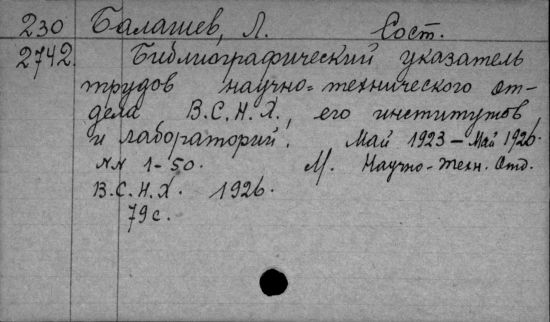 230 Балашев, Л. Сост.
2742. Библиографический указатель
трудов научно-технического от-
дела В.С.Н.Х., его институтов
и лабораторий. Май 1923 – Май 1926.
NN 1-50. М. Научно-Техн. Отд.
В.С.Н.Х. 1926.
79 с.